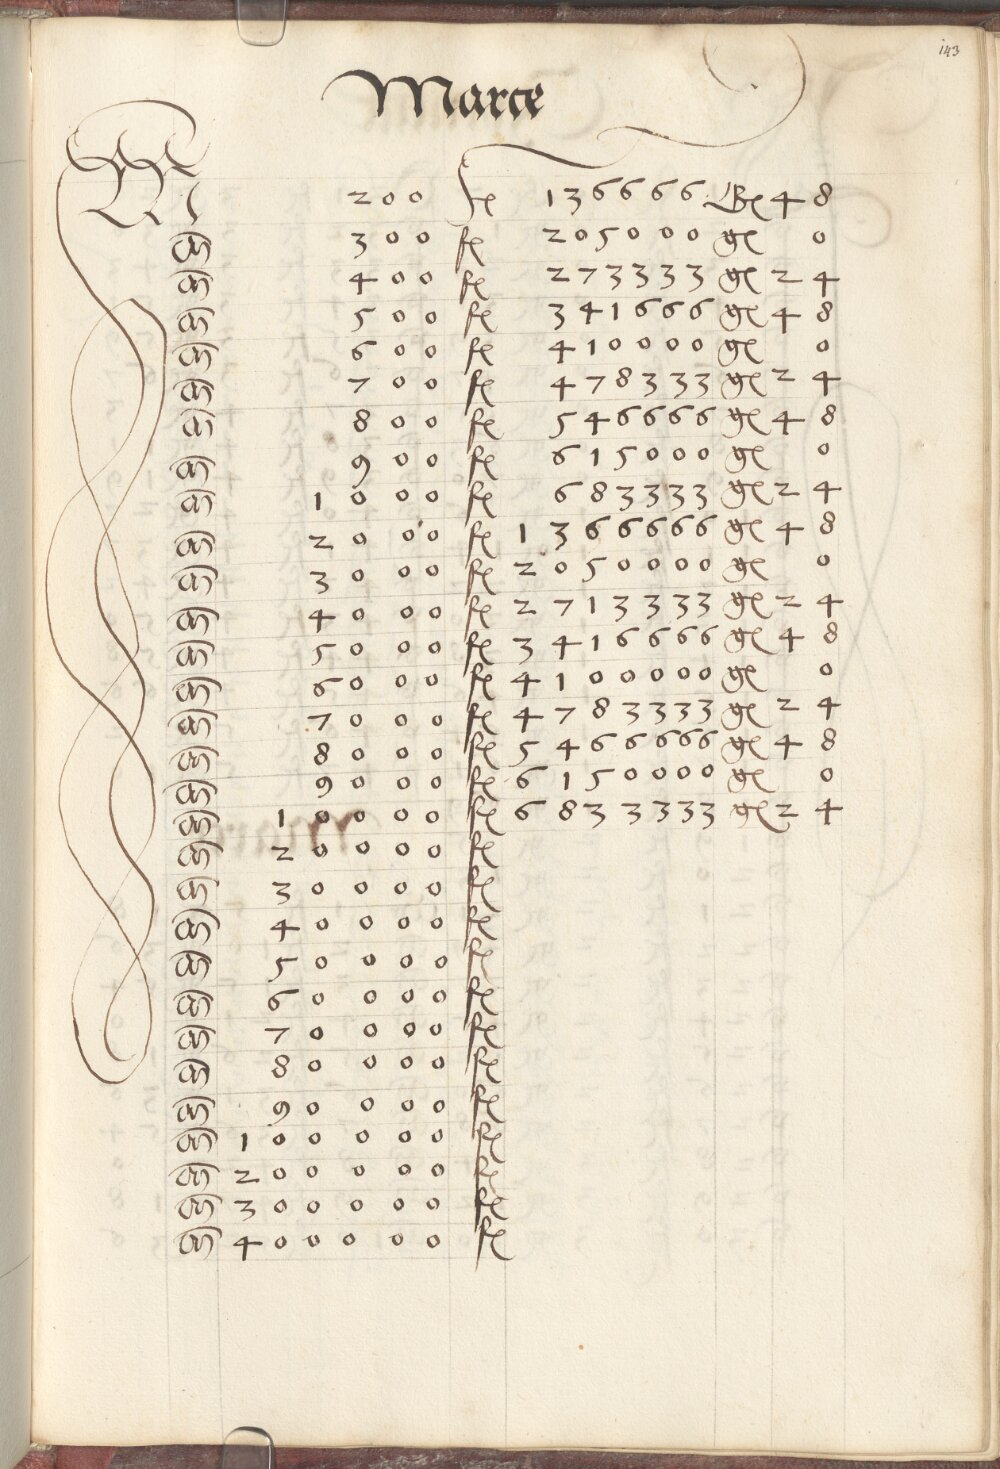 143
Marce
M 200 fl 136666 gl 4 8
m 300 fl 205000 gl 0
m 400 fl 273333 gl 2 4
m 500 fl 341666 gl 4 8
m 600 fl 410000 gl 0
m 700 fl 478333 gl 2 4
m 800 fl 546666 gl 4 8
m 900 fl 615000 gl 0
m 1000 fl 683333 gl 2 4
m 2000 fl 1366666 gl 4 8
m 3000 fl 2050000 gl 0
m 4000 fl 2713333 gl 2 4
m 5000 fl 3416666 gl 4 8
m 6000 fl 4100000 gl 0
m 7000 fl 4783333 gl 2 4
m 8000 fl 5466666 gl 4 8
m 9000 fl 6150000 gl 0
m 10000 fl 6833333 gl 2 4
m 20000 fl
m 30000 fl
m 40000 fl
m 50000 fl
m 60000 fl
m 70000 fl
m 80000 fl
m 90000 fl
m 100000 fl
m 200000 fl
m 300000 fl
m 400000 fl